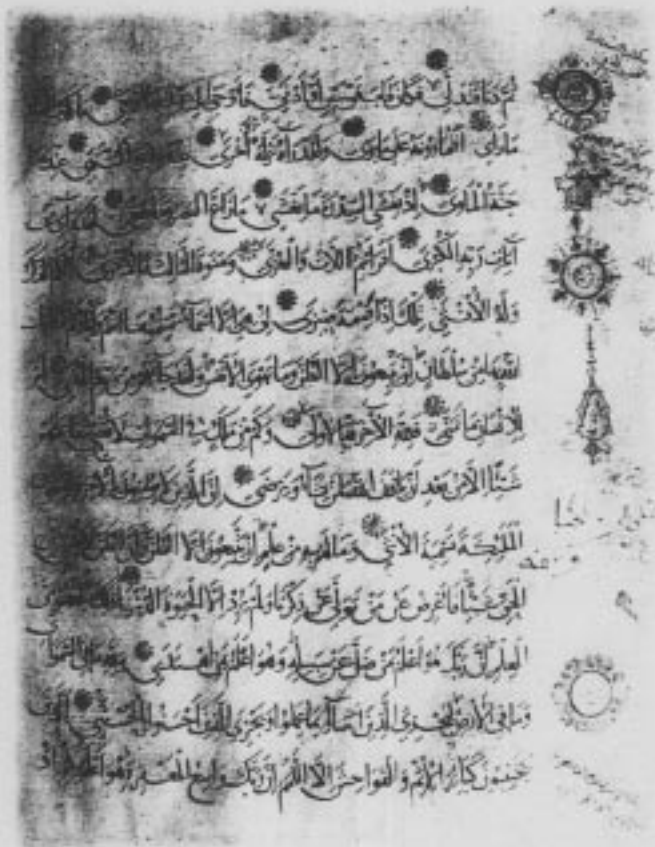 ثم دنا فتدلى فكان قاب قوسين أو أدنى فأوحى إلى عبده ما أوحى
ما رأى أفتمارونه على ما يرى ولقد رآه نزلة أخرى عند سدرة المنتهى
جنة المأوى إذ يغشى السدرة ما يغشى ما زاغ البصر وما طغى لقد رأى من
آيات ربه الكبرى أفرأيتم اللات والعزى ومنوة الثالثة الأخرى ألكم الذكر
وله الأنثى تلك إذا قسمة ضيزى إن هي إلا أسماء سميتموها أنتم
الله بها من سلطان إن يتبعون إلا الظن وما تهوى الأنفس ولقد جاءهم من ربهم الهدى أم
للإنسان ما تمنى فلله الآخرة والأولى وكم من ملك في السموات لا تغني
شيئا إلا من بعد أن يأذن الله لمن يشاء ويرضى إن الذين لا يؤمنون بالآخرة
الملئكة تسمية الأنثى وما لهم به من علم إن يتبعون إلا الظن وإن الظن لا يغني من
الحق شيئا فأعرض عن من تولى عن ذكرنا ولم يرد إلا الحيوة الدنيا ذلك مبلغهم من
العلم إن ربك هو أعلم بمن ضل عن سبيله وهو أعلم بمن اهتدى ولله ما في السموات
وما في الأرض ليجزي الذين أساؤا بما عملوا ويجزي الذين أحسنوا بالحسنى الذين
يجتنبون كبائر الإثم والفواحش إلا اللمم إن ربك واسع المغفرة هو أعلم بكم إذ